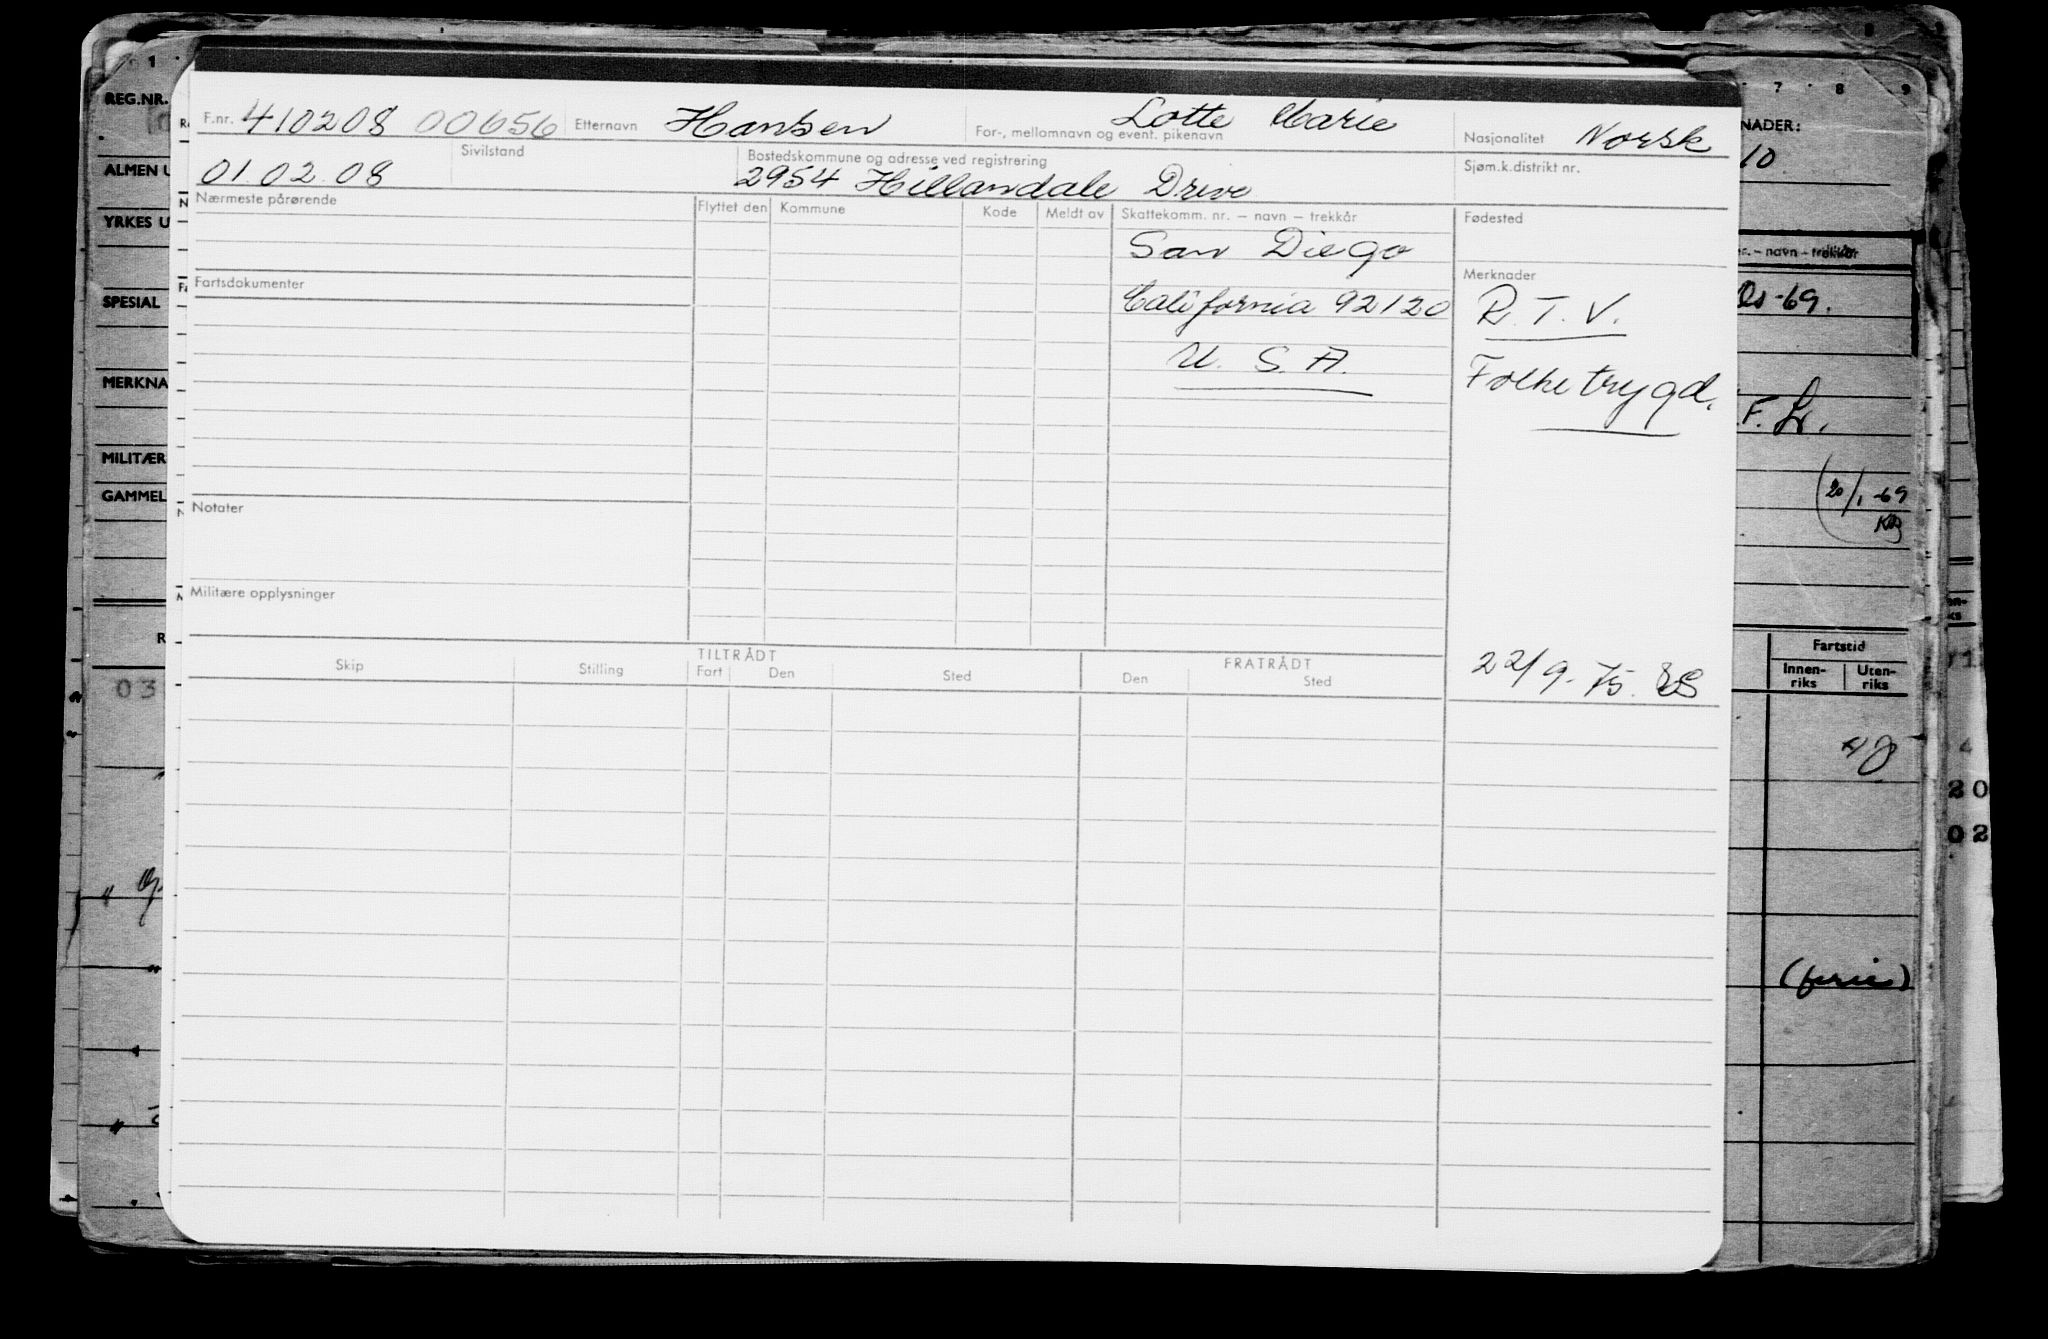 REG.NR.
ALMEN U
YRKES U
SPESIAL
MERKNA
MILITÆR
GAMMEL
03
F.nr. 410208 00656 Etternavn Hansen For-, mellomnavn og event. pikenavn Lotte Marie Nasjonalitet Norsk
01.02.08 Sivilstand Bostedskommune og adresse ved registrering 2954 Hillandale Drive Sjøm.k.distrikt nr.
Nærmeste pårørende Flyttet den Kommune Kode Meldt av Skattekomm. nr. – navn – trekkår Fødested
San Diego
Fartsdokumenter California 92120 Merknader R.T.V.
U. S. A. Folketrygd.
Notater
Militære opplysninger
22/9-75. ES
TILTRÅDT FRATRÅDT
Skip Stilling Fart Den Sted Den Sted
1 7 8 9
NADER:
10
r. – navn – trekkår
-69.
F.
20/1-69
Fartstid
Innen-riks Uten-riks
(ferie)
4
20
02